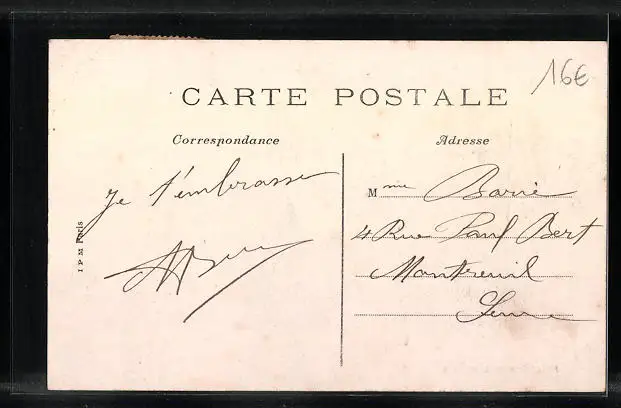 16€
CARTE POSTALE
Correspondance
Adresse
Je t'embrasse
Mme Barié
4 Rue Paul Bert
Montreuil
Seine
I P M Paris